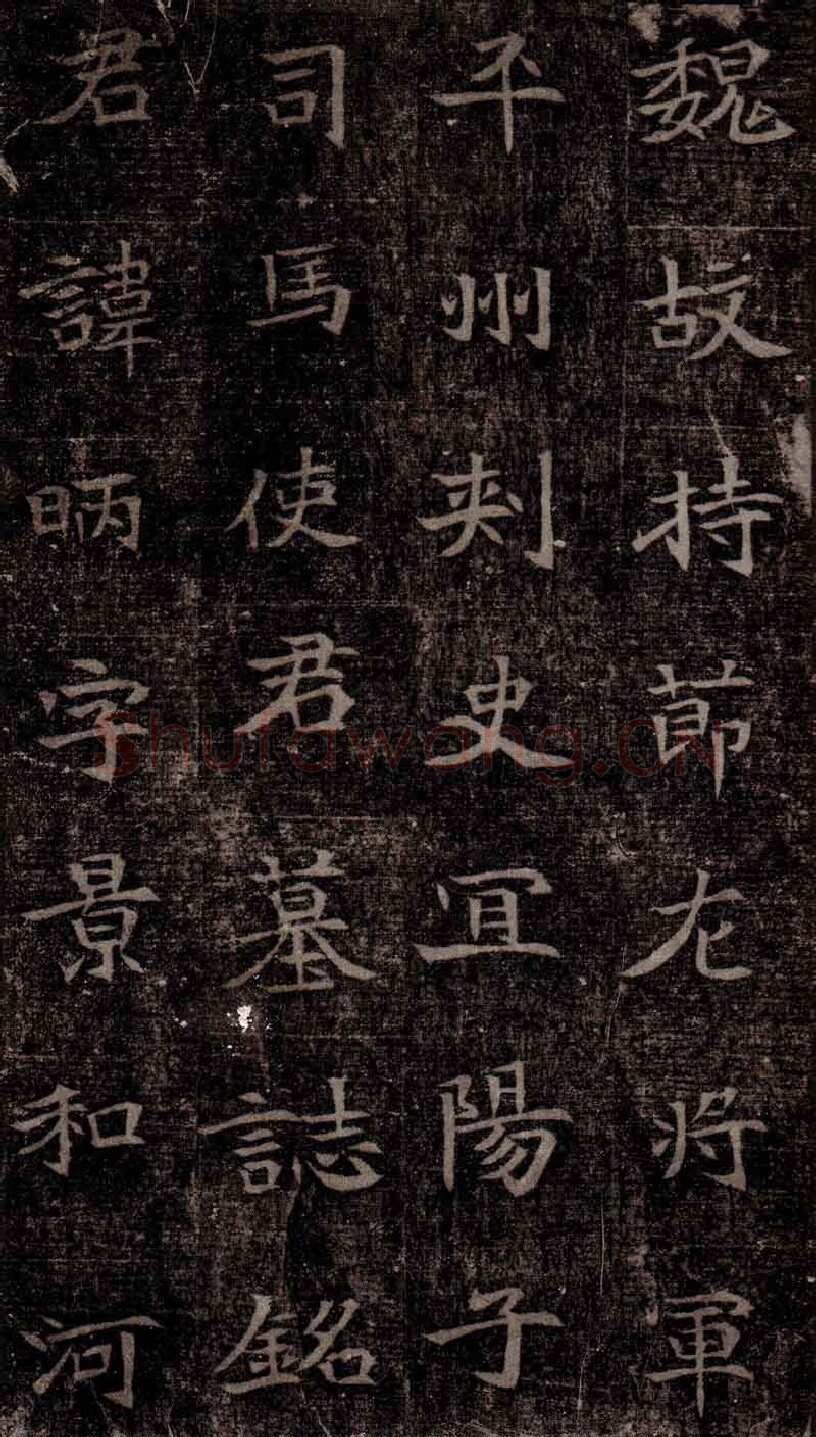 魏故持節左将軍
平州刾史冝陽子
司馬使君墓誌銘
君諱昞字景和河
shufawang.CN